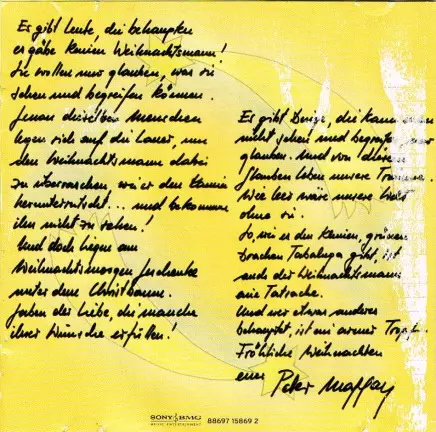 Es gibt Leute, die behaupten
es gäbe keinen Weihnachtsmann!
Sie wollen nur glauben, was sie
sehen und begreifen können.
Genau dieselben Menschen
legen sich auf die Lauer, um
den Weihnachtsmann dabei
zu überraschen, wie er den Kamin
herunterrutscht... und bekommen
ihn nicht zu sehen!
Und doch liegen am
Weihnachtsmorgen Geschenke
unter dem Christbaum.
Gaben der Liebe, die manche
ihrer Wünsche erfüllen!
Es gibt Dinge, die kann man
nicht sehen und begreifen, nur
glauben. Und von diesem
Glauben leben unsere Träume.
Wie leer wäre unsere Welt
ohne sie.
So, wie es den kleinen, grünen
Drachen Tabaluga gibt, ist
auch der Weihnachtsmann
eine Tatsache.
Und wer etwas anderes
behauptet, ist ein armer Tropf.
Fröhliche Weihnachten
euer Peter Maffay
SONY BMG
MUSIC ENTERTAINMENT
88697 15869 2